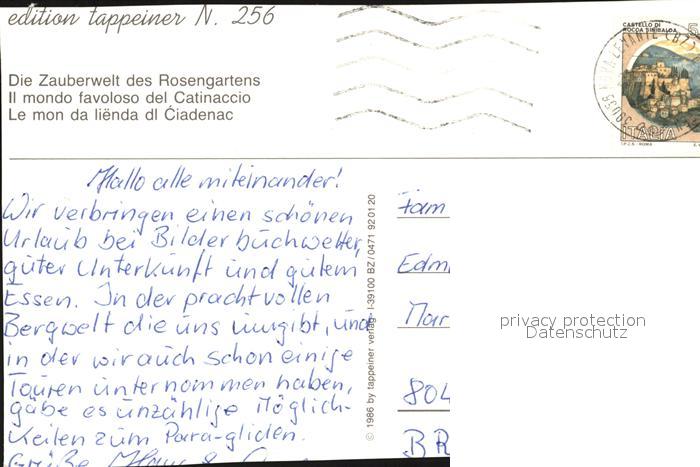 edition tappeiner N. 256
CASTELLO DI
ROCCA SINIBALDA
ITALIA
I.P.Z.S. - ROMA
Die Zauberwelt des Rosengartens
Il mondo favoloso del Catinaccio
Le mon da liënda dl Ćiadenac
Hallo alle miteinander!
Wir verbringen einen schönen
Urlaub bei Bilderbuchwetter,
guter Unterkunft und gutem
Essen. In der prachtvollen
Bergwelt die uns umgibt, und
in der wir auch schon einige
Touren unternommen haben,
gäbe es unzählige Möglich-
keiten zum Para-gliden.
Grüße
© 1986 by tappeiner verlag - I-39100 BZ/0471 920120
Fam
Edm
Mar
804
BR
privacy protection
Datenschutz